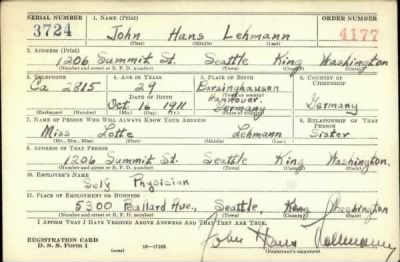 SERIAL NUMBER 1. NAME (Print) ORDER NUMBER
3724 John Hans Lehmann 4177
(First) (Middle) (Last)
2. ADDRESS (Print)
1206 Summit St. Seattle King Washington
(Number and street or R. F. D. number) (Town) (County) (State)
3. TELEPHONE 4. AGE IN YEARS 5. PLACE OF BIRTH 6. COUNTRY OF CITIZENSHIP
Ca 2815 29 Barsinghausen
DATE OF BIRTH Hannover.
Oct. 16 1911 Germany Germany
(Exchange) (Number) (Mo.) (Day) (Yr.) (State or country)
7. NAME OF PERSON WHO WILL ALWAYS KNOW YOUR ADDRESS 8. RELATIONSHIP OF THAT PERSON
Miss Lotte Lehmann Sister
(Mr., Mrs., Miss) (First) (Middle) (Last)
9. ADDRESS OF THAT PERSON
1206 Summit St. Seattle King Washington.
(Number and street or R. F. D. number) (Town) (County) (State)
10. EMPLOYER'S NAME
Self Physician
11. PLACE OF EMPLOYMENT OR BUSINESS
5300 Ballard Ave., Seattle, King Washington
(Number and street or R. F. D. number) (Town) (County) (State)
I AFFIRM THAT I HAVE VERIFIED ABOVE ANSWERS AND THAT THEY ARE TRUE.
REGISTRATION CARD
D. S. S. Form 1 (over) 16—17105 John Hans Lehmann
(Registrant's signature)